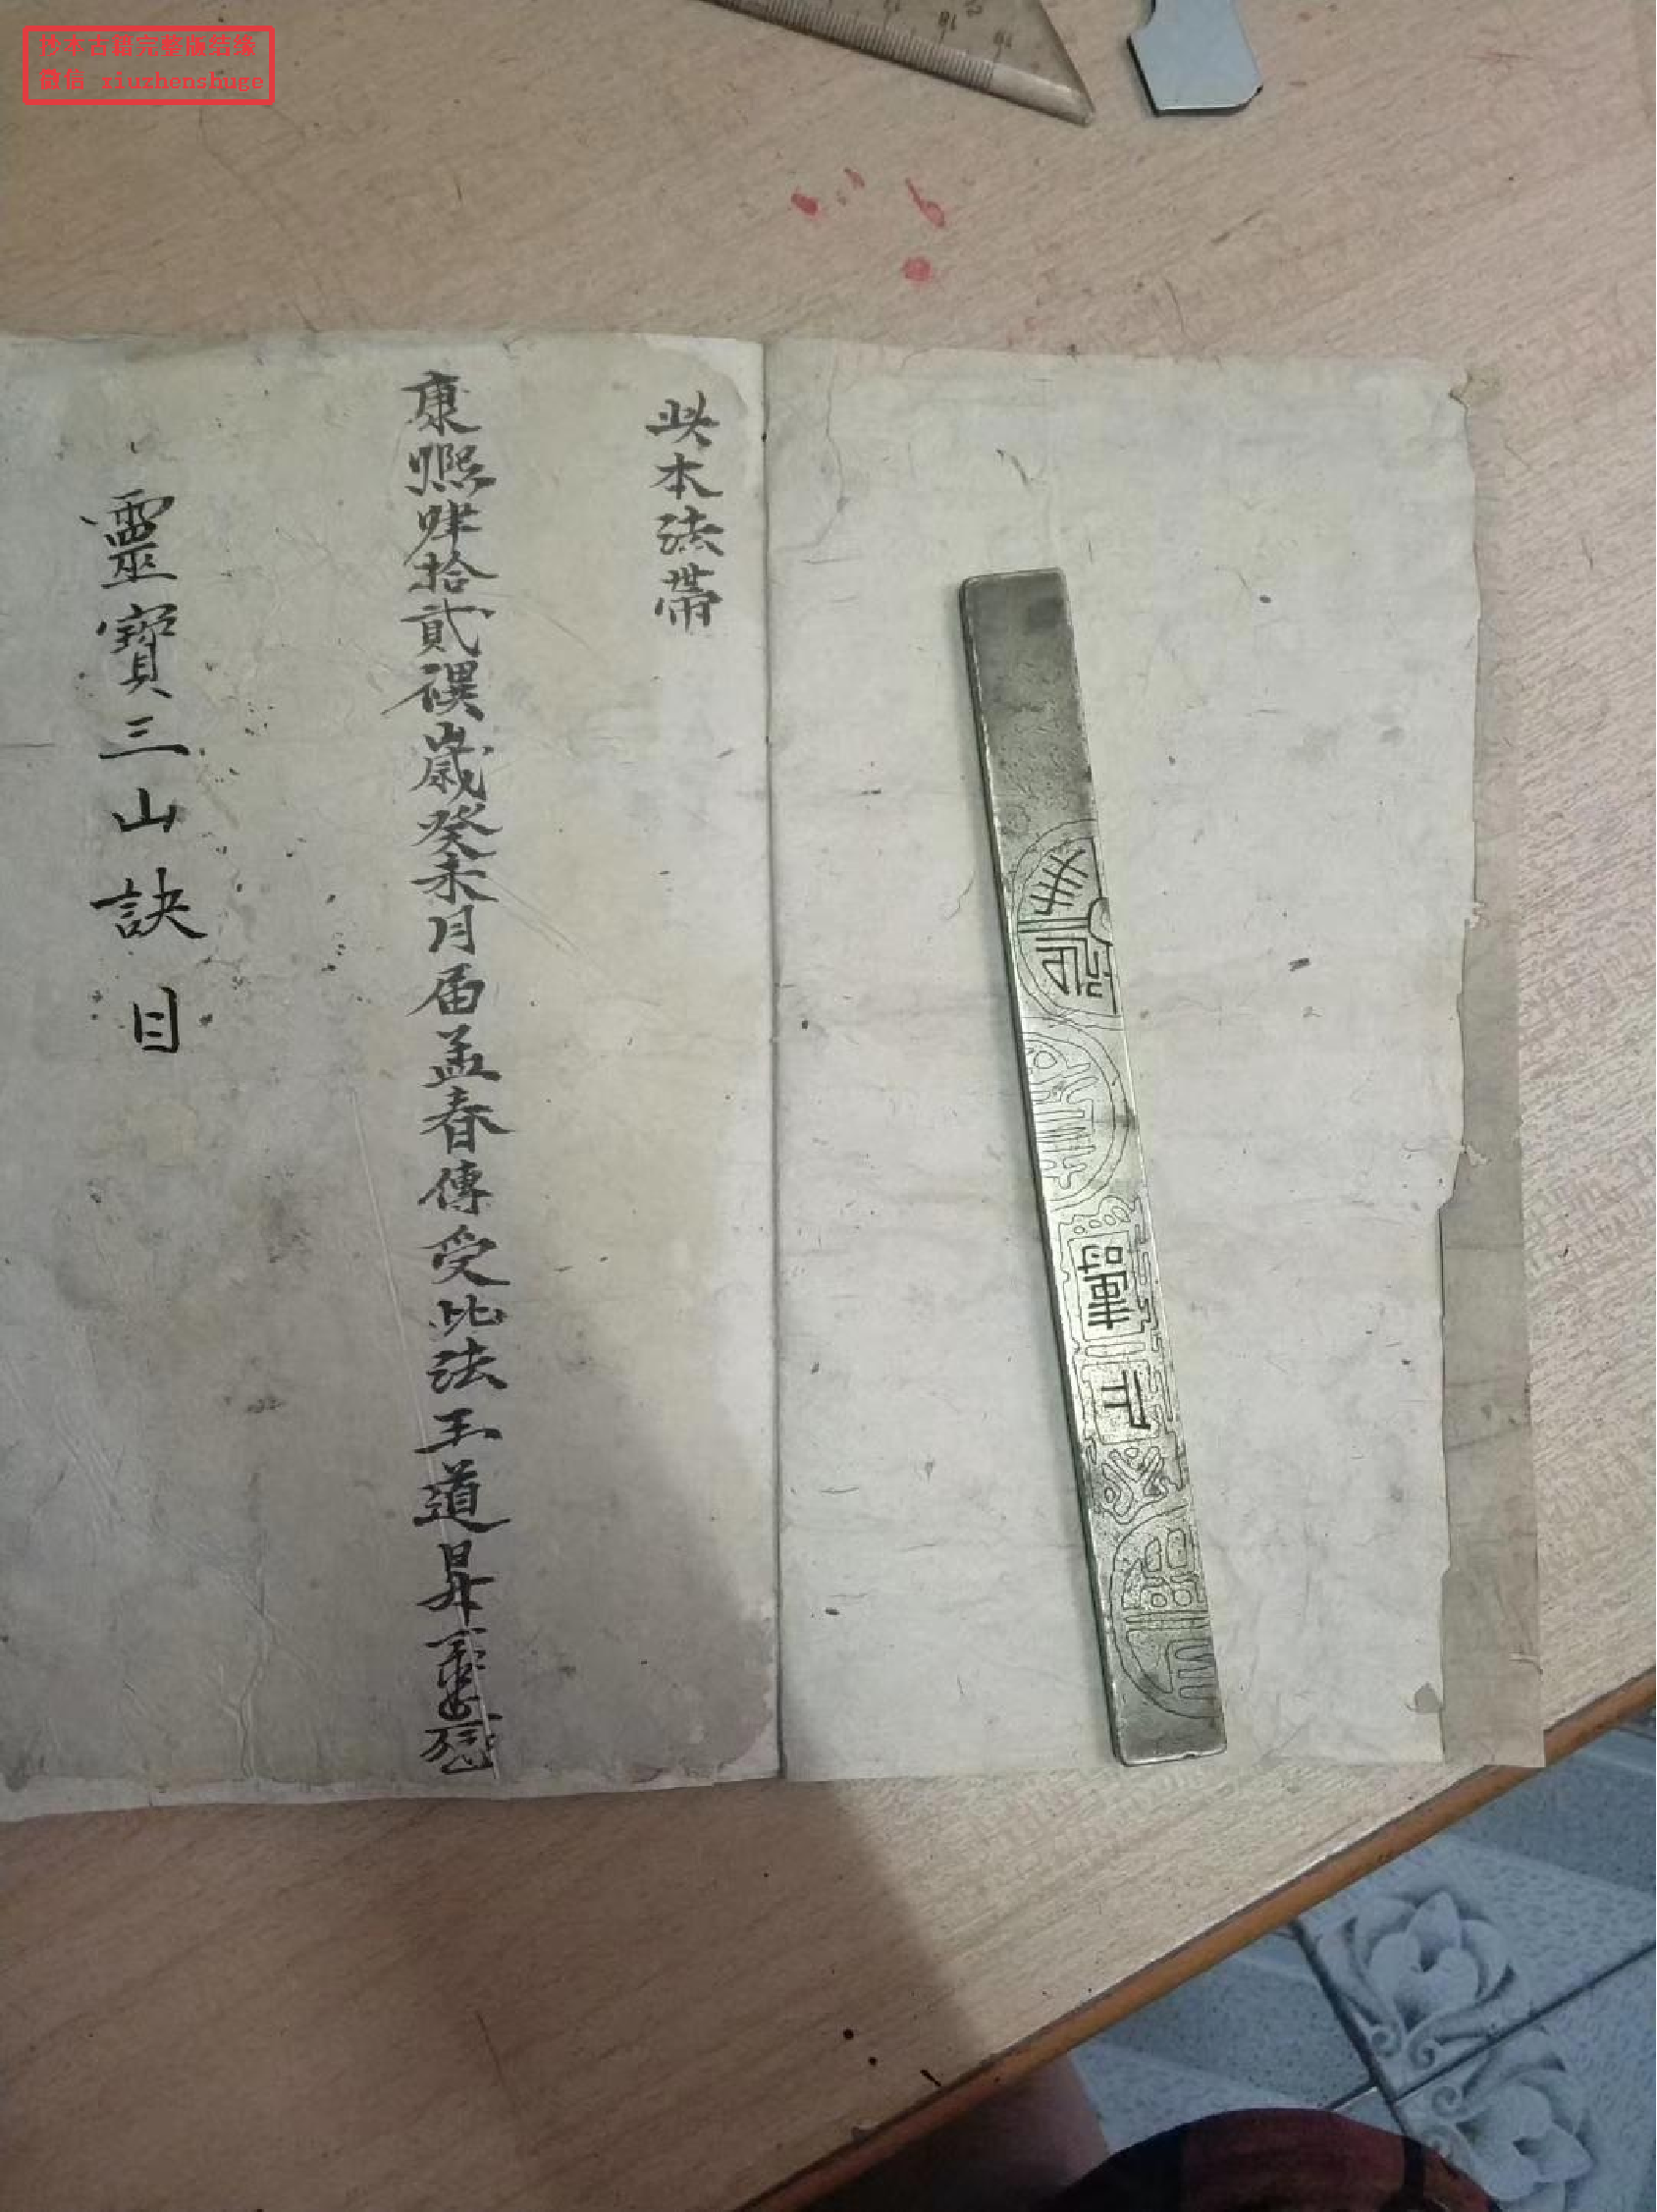 抄本古籍完整版结缘
微信 xiuzhenshuge
此本法帶
康熙肆拾貳禩歲癸未月届孟春傳受此法王道昇
靈寶三山訣目